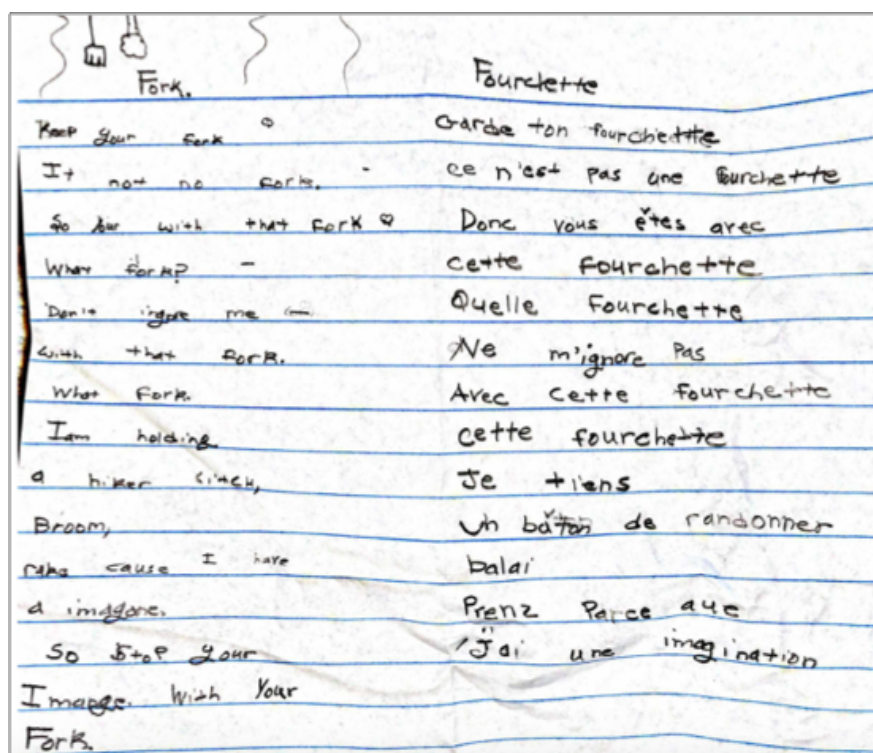 Fork.
Keep your fork
It not no fork.
So your with that fork
What fork?
Don't ingore me
with that fork.
What Fork.
I am holding
a hiker sitck,
Broom,
rake cause I have
a imagore.
So stop your
Imange. With Your
Fork.
Fourclette
Garde ton fourchettte
ce n'est pas une fourchette
Donc vous êtes avec
cette fourchette
Quelle Fourchette
Ne m'ignore pas
Avec cette fourchette
cette fourchette
Je tiens
Un bâton de randonner
balai
Prenz Parce que
J'ai une imagination